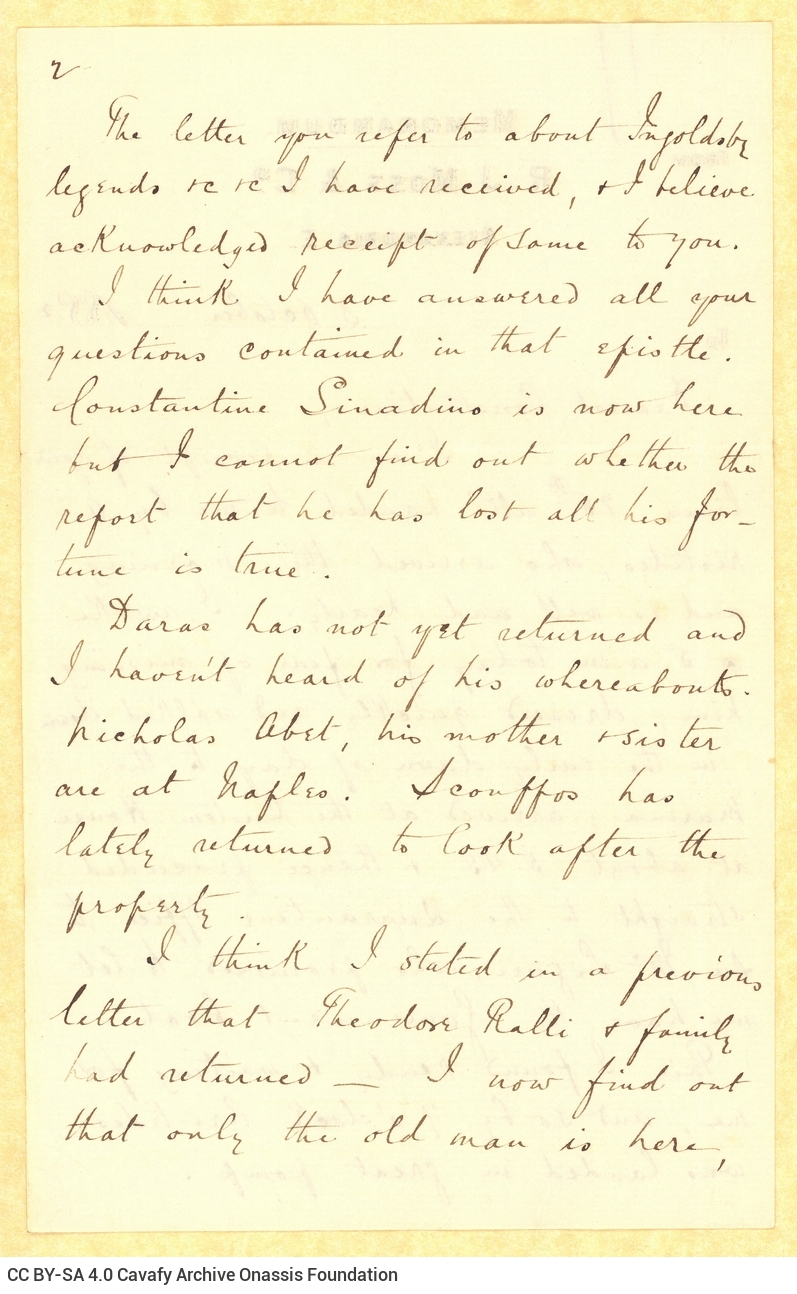 2
The letter you refer to about Ingoldsby
legends &c &c I have received, & I believe
acknowledged receipt of same to you.
I think I have answered all your
questions contained in that epistle.
Constantine Sinadino is now here
but I cannot find out whether the
report that he has lost all his for-
tune is true.
Daras has not yet returned and
I haven't heard of his whereabouts.
Nicholas Abet, his mother & sister
are at Naples. Scouffos has
lately returned to look after the
property.
I think I stated in a previous
letter that Theodore Ralli & family
had returned — I now find out
that only the old man is here,
CC BY-SA 4.0 Cavafy Archive Onassis Foundation